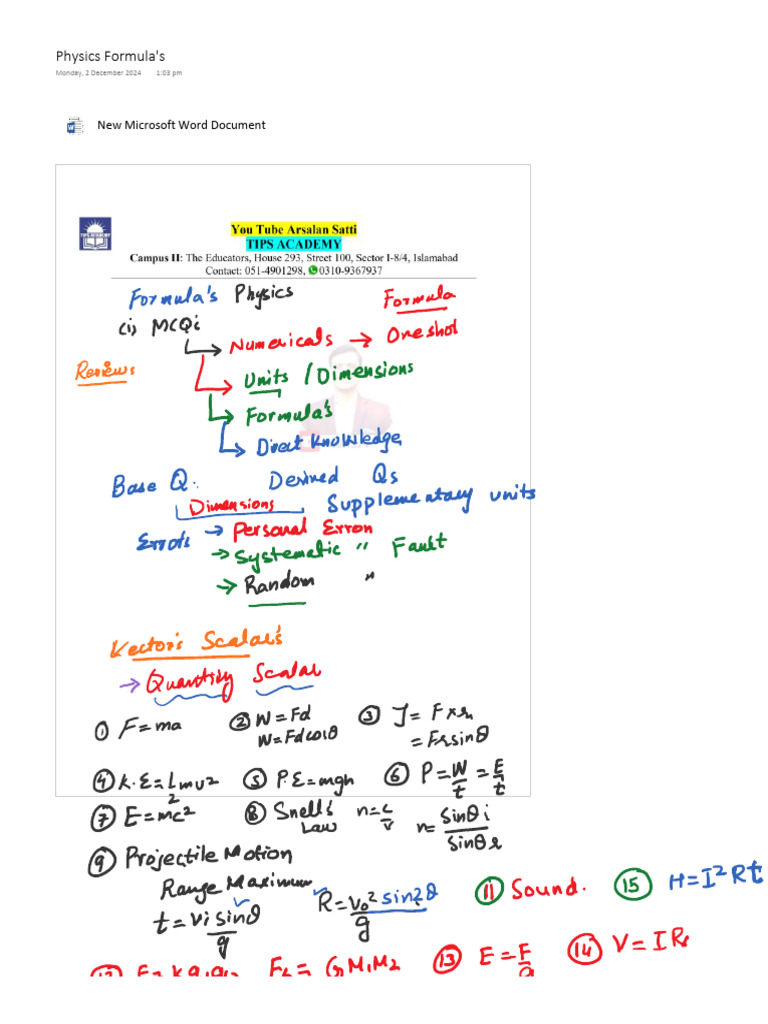 Physics Formula's
Monday, 2 December 2024 1:03 pm
New Microsoft Word Document
TIPS ACADEMY
You Tube Arsalan Satti
TIPS ACADEMY
Campus II: The Educators, House 293, Street 100, Sector I-8/4, Islamabad
Contact: 051-4901298, 0310-9367937
Formula's Physics Formula
(i) MCQi
Numericals → One shot
Reviews
Units / Dimensions
Formula's
Direct Knowledge
Base Q. Derived Qs
Dimensions Supplementary units
Errors → Personal Erron
→ Systematic " Fault
→ Random "
Vector's Scalar's
→ Quantity Scalar
① F = ma ② W = Fd ③ J = F × r
W = Fd cosθ = Fr sinθ
④ K.E = 1/2 mv² ⑤ P.E = mgh ⑥ P = W/t = E/t
⑦ E = mc² ⑧ Snell's Law n = c/v n = sinθi/sinθr
⑨ Projectile Motion
Range Maximum
t = vi sinθ/g R = v₀² sin2θ/g ⑪ Sound. ⑮ H = I²Rt
⑬ E = F/q ⑭ V = IR